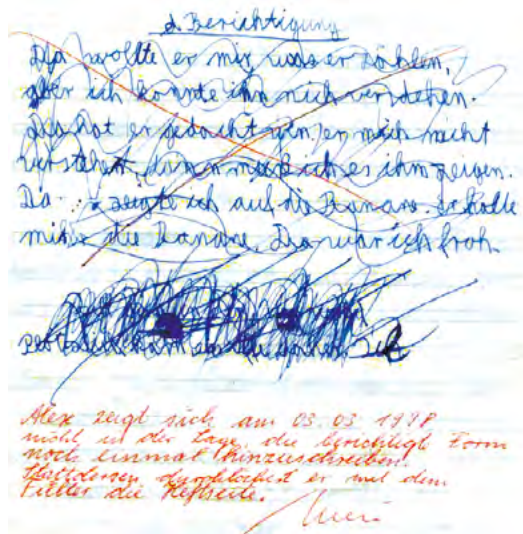 d. Berichtigung
Da wollte er mir was erzählen,
aber ich konnte ihn nich verstehen.
Da hat er gedacht wen er mich nicht
verstehet, dann muß ich es ihm zeigen.
Da zeigte ich auf die Banane. er holte
mir die Banane. Da war ich froh.
Alex zeigt sich am 03.03.1998
nicht in der Lage, die berichtigte Form
noch einmal hinzuschreiben.
Stattdessen durchlöchert er mit dem
Füller die Heftseite.